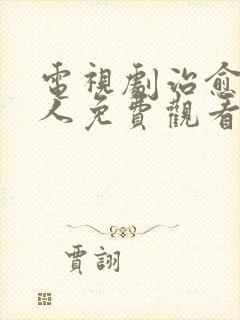 電視劇治愈
人免費觀看
賈詡